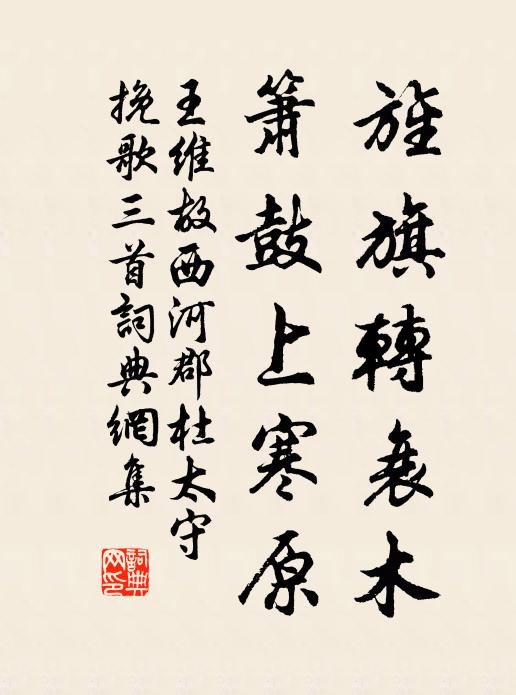 旌旗轉衰木
簫鼓上寒原
王維故西河郡杜太守
挽歌三首詞典網集
詞典
网印